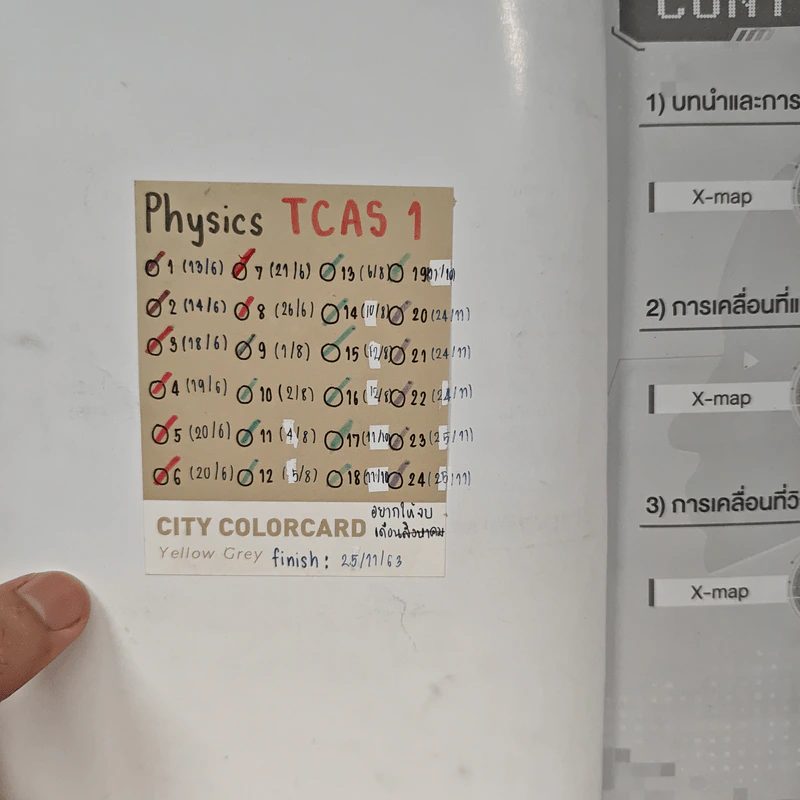 Physics TCAS 1
1 (13/6) 7 (21/6) 13 (6/8) 19 (11/10)
2 (14/6) 8 (26/6) 14 (10/8) 20 (24/11)
3 (18/6) 9 (1/8) 15 (12/8) 21 (24/11)
4 (19/6) 10 (2/8) 16 (12/8) 22 (24/11)
5 (20/6) 11 (4/8) 17 (11/10) 23 (25/11)
6 (20/6) 12 (5/8) 18 (11/10) 24 (25/11)
อยากให้จบ
CITY COLORCARD เดือนสิงหาคม
Yellow Grey finish: 25/11/63
1) บทนำและการ
X-map
2) การเคลื่อนที่แ
X-map
3) การเคลื่อนที่วิ
X-map